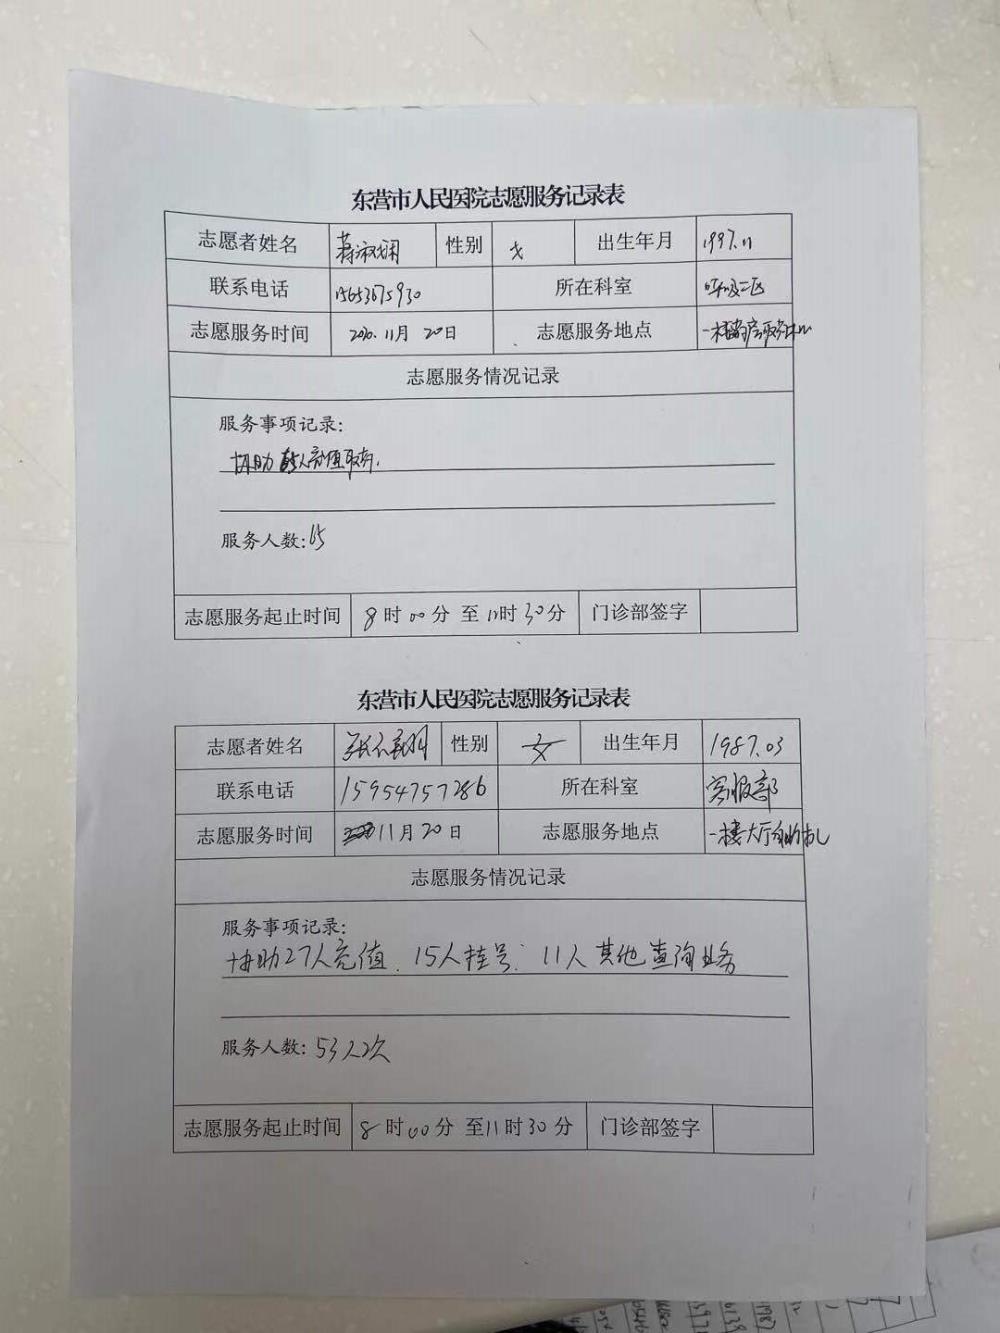 东营市人民医院志愿服务记录表
志愿者姓名 蒋淑娴 性别 女 出生年月 1997.11
联系电话 15653675930 所在科室 呼吸二区
志愿服务时间 2020.11月20日 志愿服务地点 一楼药房服务中心
志愿服务情况记录
服务事项记录:
协助 充值服务.
服务人数:65
志愿服务起止时间 8时00分 至11时30分 门诊部签字
东营市人民医院志愿服务记录表
志愿者姓名 张 性别 女 出生年月 1987.03
联系电话 15954757286 所在科室 客服部
志愿服务时间 11月20日 志愿服务地点 一楼大厅自助机
志愿服务情况记录
服务事项记录:
协助27人充值、15人挂号、11人其他查询业务
服务人数:53人次
志愿服务起止时间 8时00分 至11时30分 门诊部签字